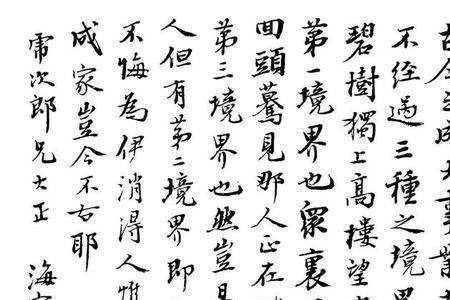 古今之成大事業
不經過三種之境
碧樹獨上高樓望
第一境界也眾裏
回頭驀見那人正在
第三境界也然豈
人但有第二境界即
不悔為伊消得人
成家豈今不古耶
虎次郎兄大正
海